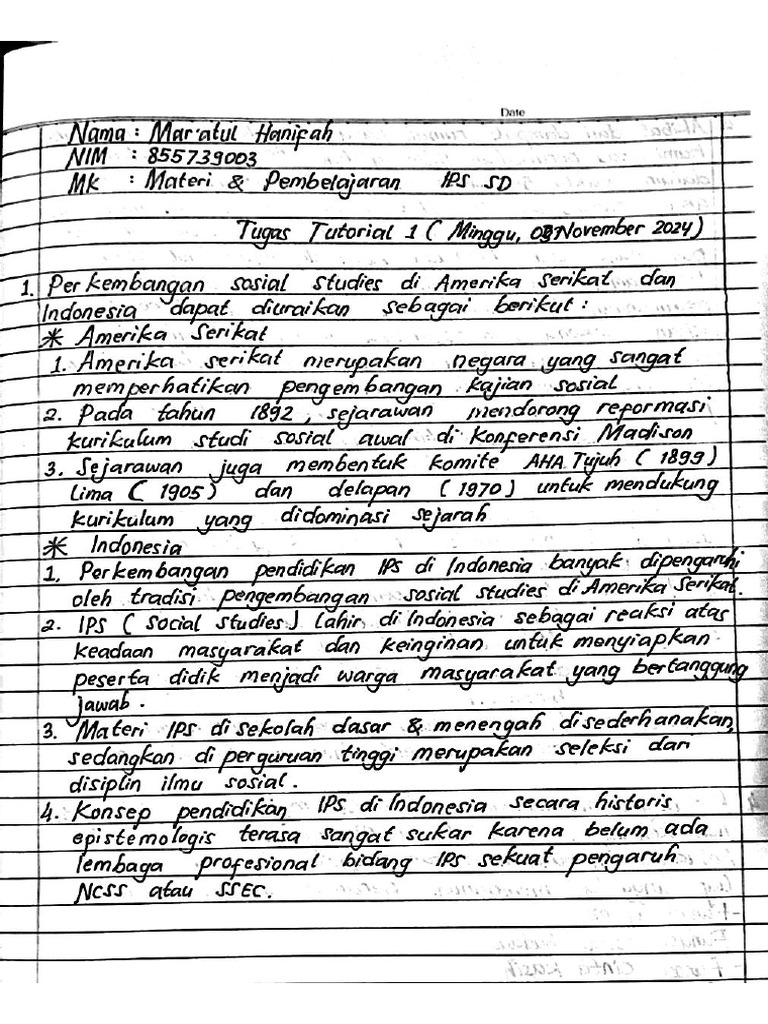 Date
Nama : Mar'atul Hanifah
NIM : 855739003
MK : Materi & Pembelajaran IPS SD
Tugas Tutorial 1 ( Minggu, 03 November 2024)
1. Perkembangan sosial studies di Amerika Serikat dan
Indonesia dapat diuraikan sebagai berikut :
* Amerika Serikat
1. Amerika serikat merupakan negara yang sangat
memperhatikan pengembangan kajian sosial
2. Pada tahun 1892, sejarawan mendorong reformasi
kurikulum studi sosial awal di Konferensi Madison
3. Sejarawan juga membentuk komite AHA Tujuh ( 1899)
Lima ( 1905) dan delapan ( 1970) untuk mendukung
kurikulum yang didominasi sejarah
* Indonesia
1. Perkembangan pendidikan IPS di Indonesia banyak dipengaruhi
oleh tradisi pengembangan sosial studies di Amerika Serikat.
2. IPS ( Social studies) Lahir di Indonesia sebagai reaksi atas
keadaan masyarakat dan keinginan untuk menyiapkan
peserta didik menjadi warga masyarakat yang bertanggung
jawab.
3. Materi IPS di sekolah dasar & menengah disederhanakan,
sedangkan di perguruan tinggi merupakan seleksi dari
disiplin ilmu sosial.
4. Konsep pendidikan IPS di Indonesia secara historis
epistemologis terasa sangat sukar karena belum ada
lembaga profesional bidang IPS sekuat pengaruh
NCSS atau SSEC.